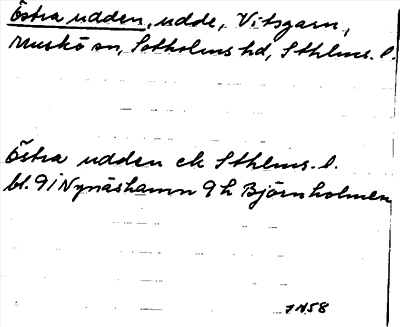 Östra udden, udde, Vitsgarn,
Muskö sn, Sotholms hd, Sthlms. l.
Östra udden ek Sthlms. l.
bl. 9 i Nynäshamn 9 h Björnholmen